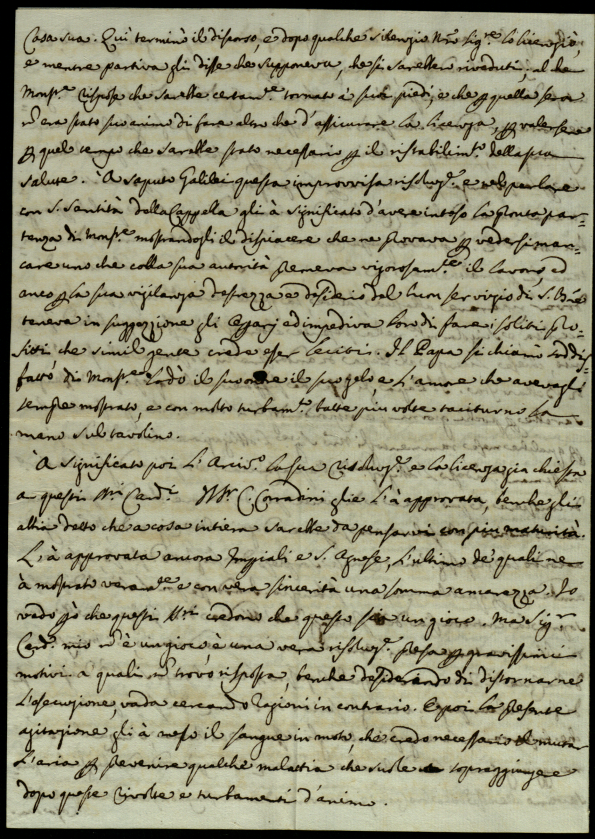 Casa sua. Quì terminò il discorso, e dopo qualche silenzio Nro Sigre lo licenziò,
e mentre partiva gli disse che supponeva, che si sarebbero riveduti, al che
Monsre rispose che sarebbe certamte tornato à suoi piedi, e che p quella sera
nò era stato suo animo di fare altro che d'assicurare la licenza, p valersene
p quel tempo che sarebbe stato necessario p il ristabilimto della sua
salute. À saputo Galilei questa improvvisa risoluze e nel parlare
con S. Santità della Cappella gli à significato d'avere inteso la pronta par=
tenza di Monsre mostrandogli il dispiacere che ne provava p vedersi man=
care uno che colla sua autorità premeva vigorosamte il lavoro, ed
anco p la sua vigilanza destrezza e desiderio del buon servizio di S. Bne
teneva in suggezzione gli ed impediva loro di fare i soliti pro=
fitti che simil gente crede esser leciti. Il Papa si chiamò soddis=
fatto di Monsre lodò il suo il suo zelo, e l'amore che avevagli
sempre mostrato, e con molto turbamto battè più volte taciturno la
mano sul tavolino.
À significato poi l'Arcivo la sua risoluze e la licenza già chiesta
a questi Nri Cardi. Nro C. Corradini glie l'à approvata, benche gli
abbia detto che a cosa intiera sarebbe da pensarvi con più maturità.
L'à approvata ancora Imp̃iali e S. Agnese, l'ultimo de' quali ne
à mostrato veramte e con vera sincerità una somma amarezza. Io
vedo p̃ò che questi Nri credono che questo sia un gioco. Ma Sigre
Carde mio nò è un gioco è una vera risoluze presa p gravissimi
motivi a quali nò trovo risposta, benche desiderando di distornarne
l'esecuzione, vada cercando ragioni in contrario. E poi la presente
agitazione gli à messo il sangue in moto, che credo necessario il mutar
l'aria p prevenire qualche malattia che suole sopraggiungere
dopo queste rivolte e turbamenti d'animo.